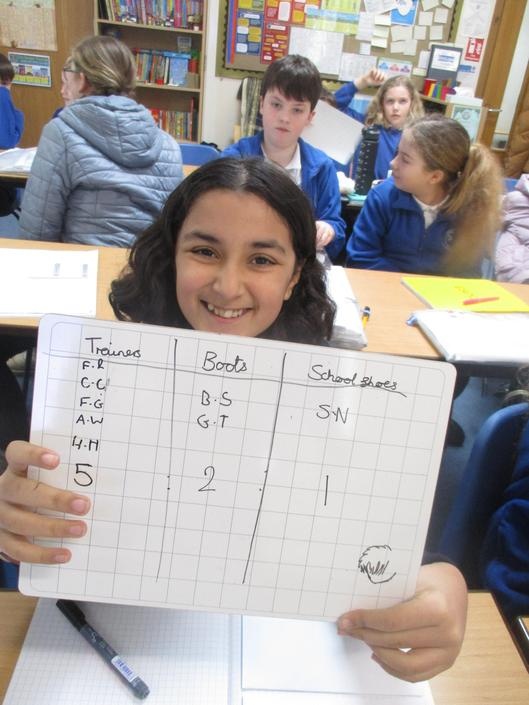 Trainers Boots School shoes
F.R
C.C
F.G
A.W
H.H
B.S
G.T
S.N
5 : 2 : 1